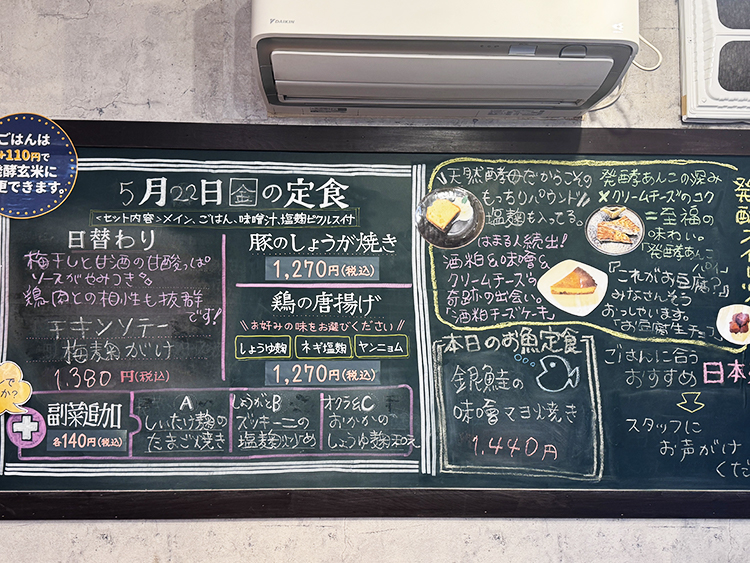 DAIKIN
ごはんは
+110円で
発酵玄米に
更できます。
5月22日(金)の定食
<セット内容>メイン、ごはん、味噌汁、塩麹ピクルス付
日替わり
梅干しと甘酒の甘酸っぱ
ソースがやみつき
鶏肉との相性も抜群
です!
チキンソテー
梅麹がけ
1.380円(税込)
豚のしょうが焼き
1,270円(税込)
鶏の唐揚げ
\\お好みの味をお選びください//
しょうゆ麹
ネギ塩麹
ヤンニョム
1,270円(税込)
副菜追加
各140円(税込)
A
しいたけ麹の
たまご焼き
しょうがとB
ズッキーニの
塩麹炒め
オクラ&C
おかかの
しょうゆ麹和え
天然酵母だからこその
もっちりパウンド
塩麹も入ってる。
はまる人続出!
酒粕&味噌&
クリームチーズの
奇跡の出会い。
「酒粕チーズケーキ」
発酵あんこの深み
×クリームチーズのコク
=至福の
味わい。
「発酵あんこ
パイ」
『これがお豆腐?』
みなさんそう
おっしゃいます。
「お豆腐生チョコ」
本日のお魚定食
銀鮭の
味噌マヨ焼き
1.440円
ごはんに合う
おすすめ日本
スタッフに
お声がけ
くだ